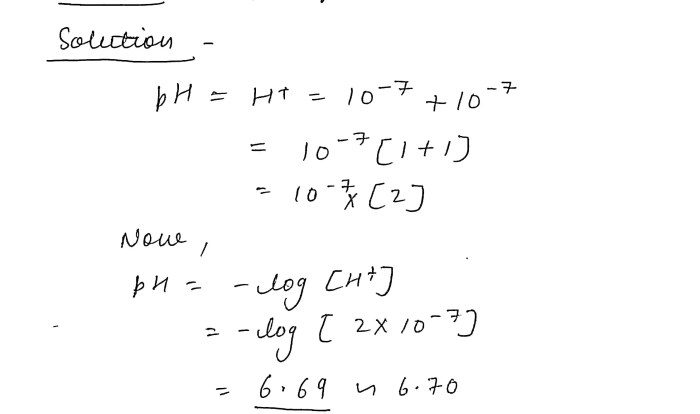 Solution -
pH = H+ = 10⁻⁷ + 10⁻⁷
= 10⁻⁷ [1+1]
= 10⁻⁷ x [2]
Now,
pH = - log [H⁺]
= - log [ 2x 10⁻⁷]
= 6.69 ~ 6.70